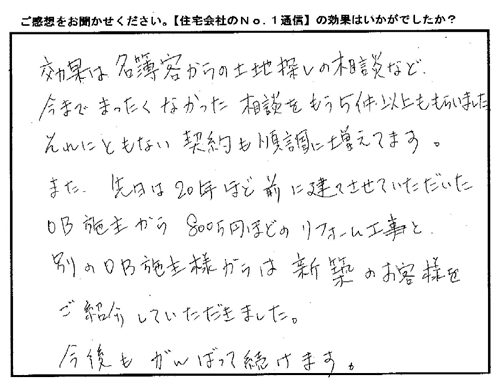 ご感想をお聞かせください。【住宅会社のNo.1通信】の効果はいかがでしたか？
効果は名簿客からの土地探しの相談など、
今までまったくなかった相談をもう5件以上ももらいました
それにともない契約も順調に増えてます。
また、先日は20年ほど前に建てさせていただいた
OB施主から800万円ほどのリフォーム工事と、
別のOB施主様からは新築のお客様を
ご紹介していただきました。
今後もがんばって続けます。